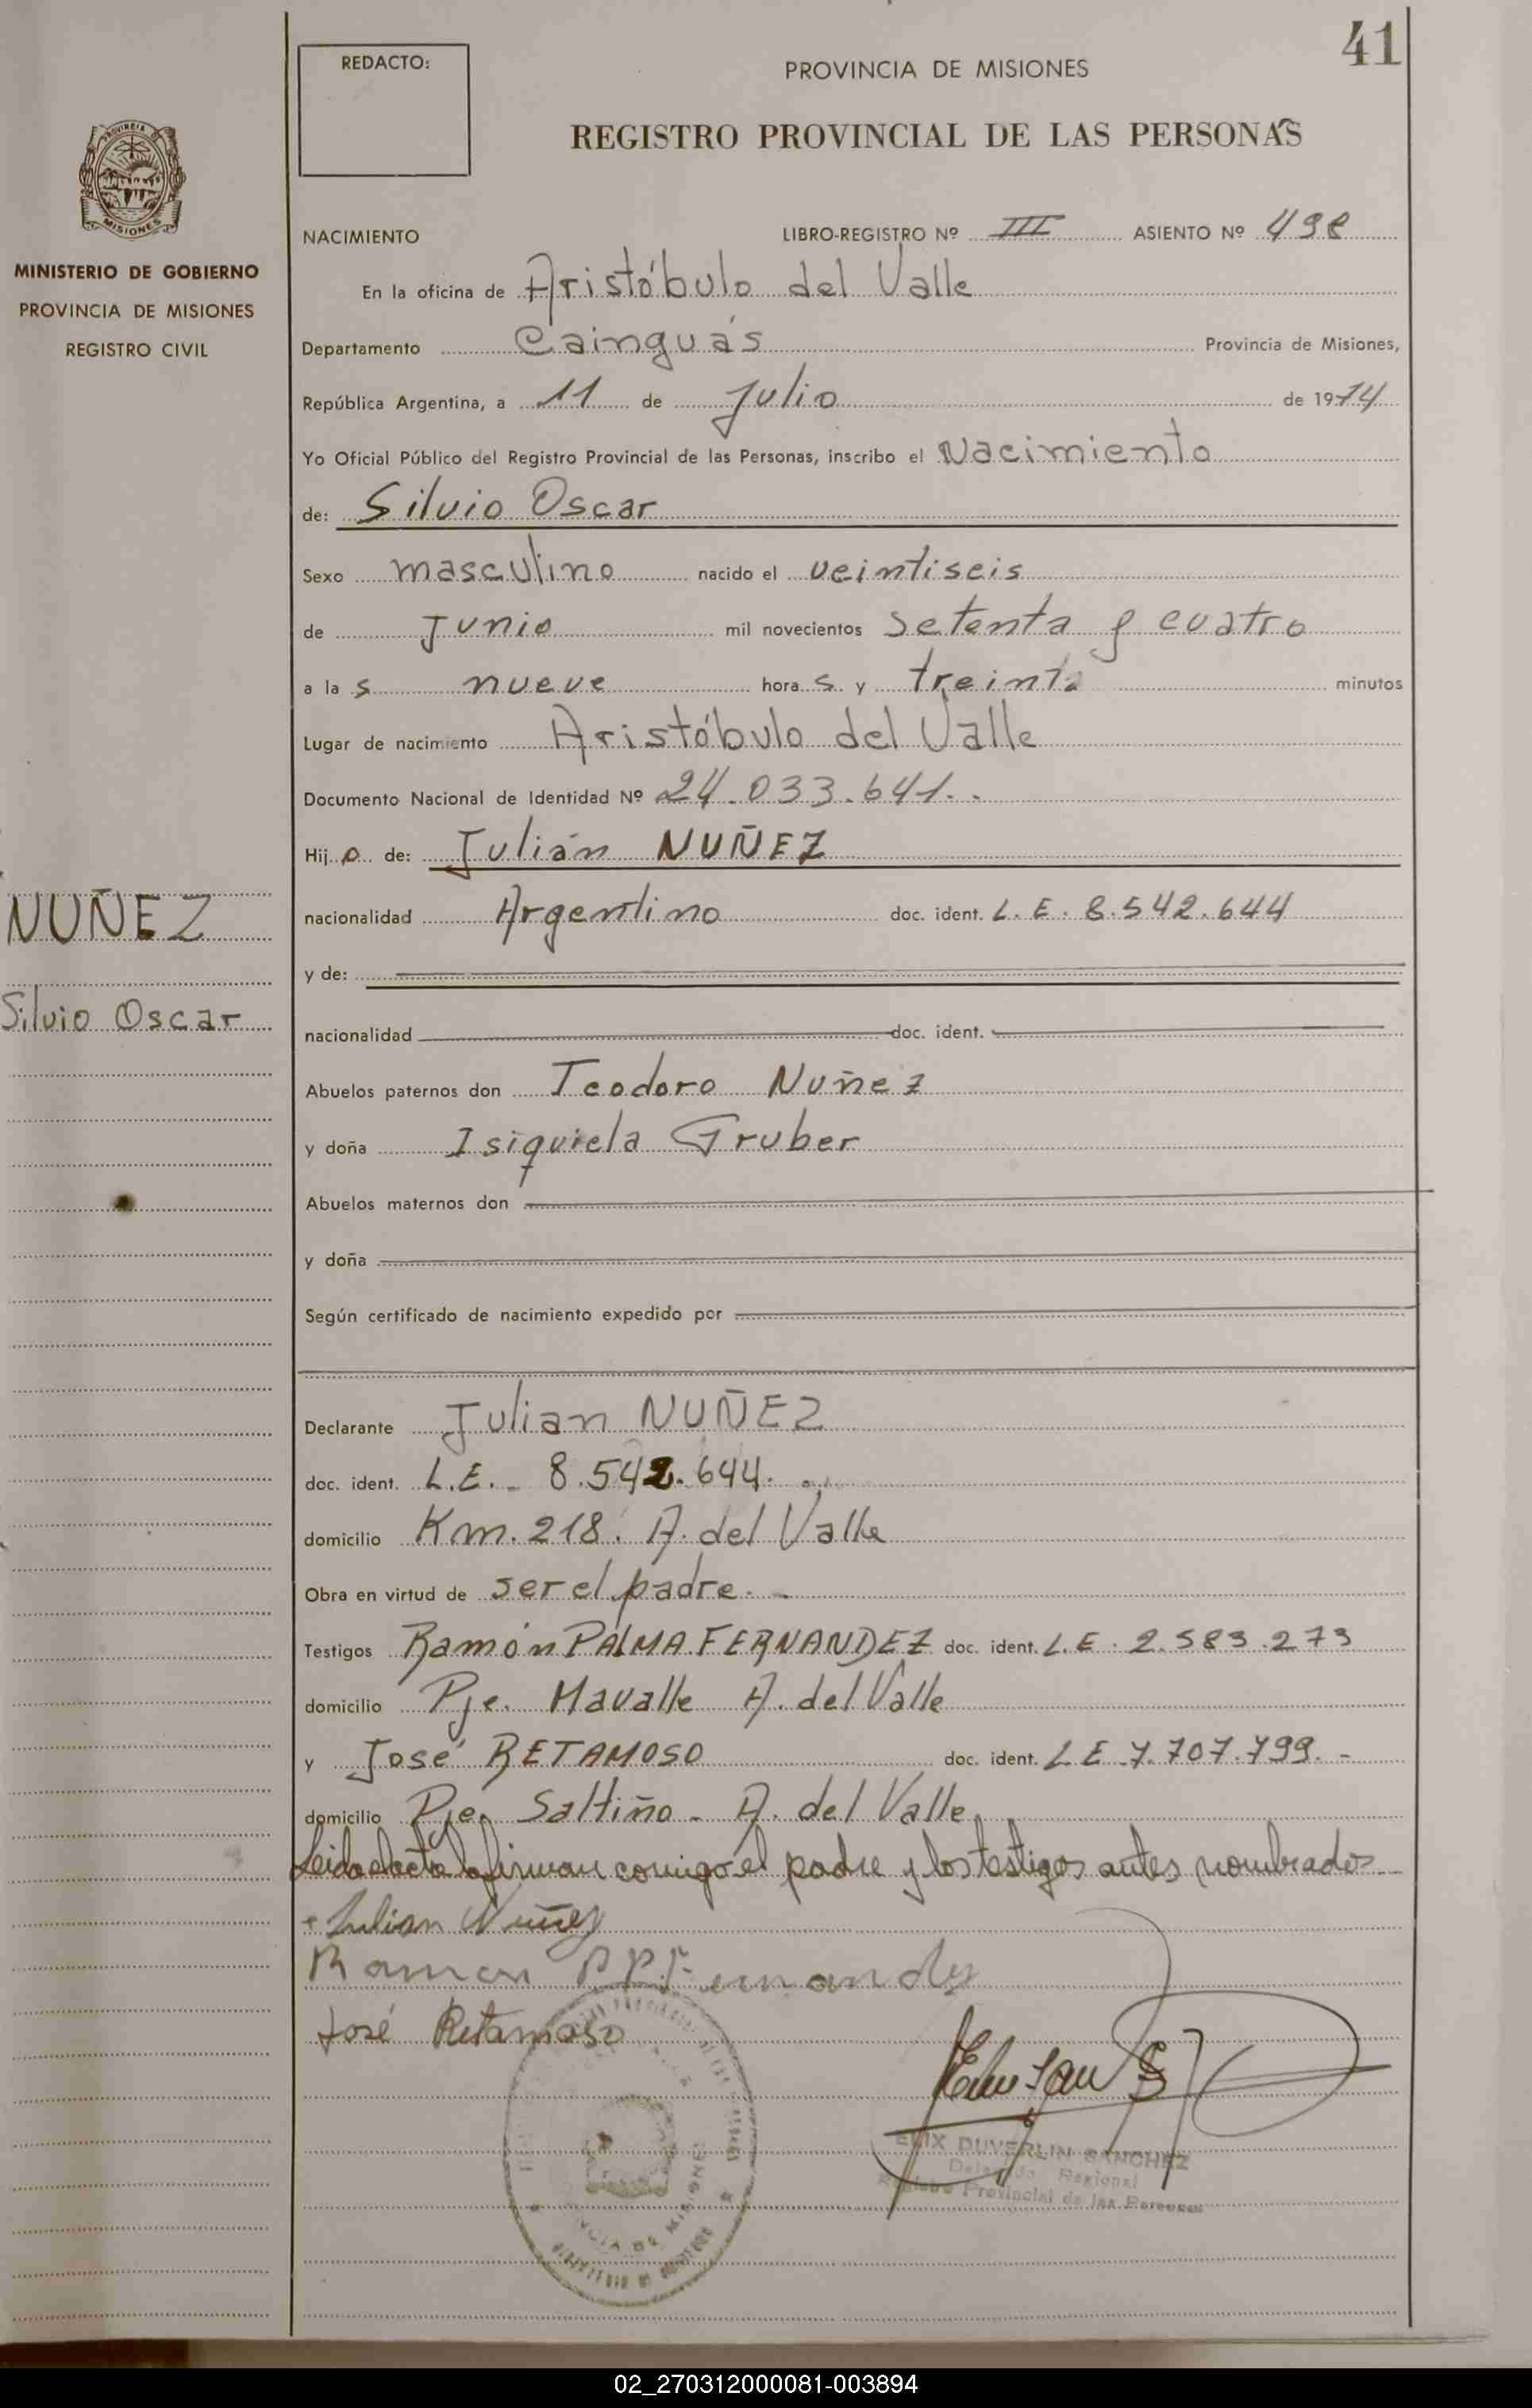 41
REDACTO:
PROVINCIA DE MISIONES
REGISTRO PROVINCIAL DE LAS PERSONAS
MISIONES
MINISTERIO DE GOBIERNO
PROVINCIA DE MISIONES
REGISTRO CIVIL
NACIMIENTO LIBRO-REGISTRO Nº III ASIENTO Nº 498
En la oficina de Aristóbulo del Valle
Departamento Cainguás Provincia de Misiones,
República Argentina, a 11 de Julio de 1974
Yo Oficial Público del Registro Provincial de las Personas, inscribo el Nacimiento
de: Silvio Oscar
Sexo masculino nacido el veintiseis
de Junio mil novecientos setenta y cuatro
a la s nueve hora s y treinta minutos
Lugar de nacimiento Aristóbulo del Valle
Documento Nacional de Identidad Nº 24.033.641.
Hij o de: Julián NUÑEZ
NUÑEZ
nacionalidad Argentino doc. ident. L. E. 8.542.644
y de:
Silvio Oscar
nacionalidad doc. ident.
Abuelos paternos don Teodoro Nuñez
y doña Isiquiela Gruber
Abuelos maternos don
y doña
Según certificado de nacimiento expedido por
Declarante Julian NUÑEZ
doc. ident. L.E. 8.542.644.
domicilio Km. 218. A. del Valle
Obra en virtud de ser el padre.
Testigos Ramón PALMA FERNANDEZ doc. ident. L.E. 2.583.273
domicilio Pje. Mavalle A. del Valle
y José RETAMOSO doc. ident. L E 7.707.799.
domicilio Pje. Saltiño - A. del Valle
Leida el acta la firman comigo el padre y los testigos antes nombrados
Julian Nuñez
Ramon
José Retamoso
ELIX DUVERLIN SANCHEZ
Delegado Regional
Registro Provincial de las Personas
02_270312000081-003894